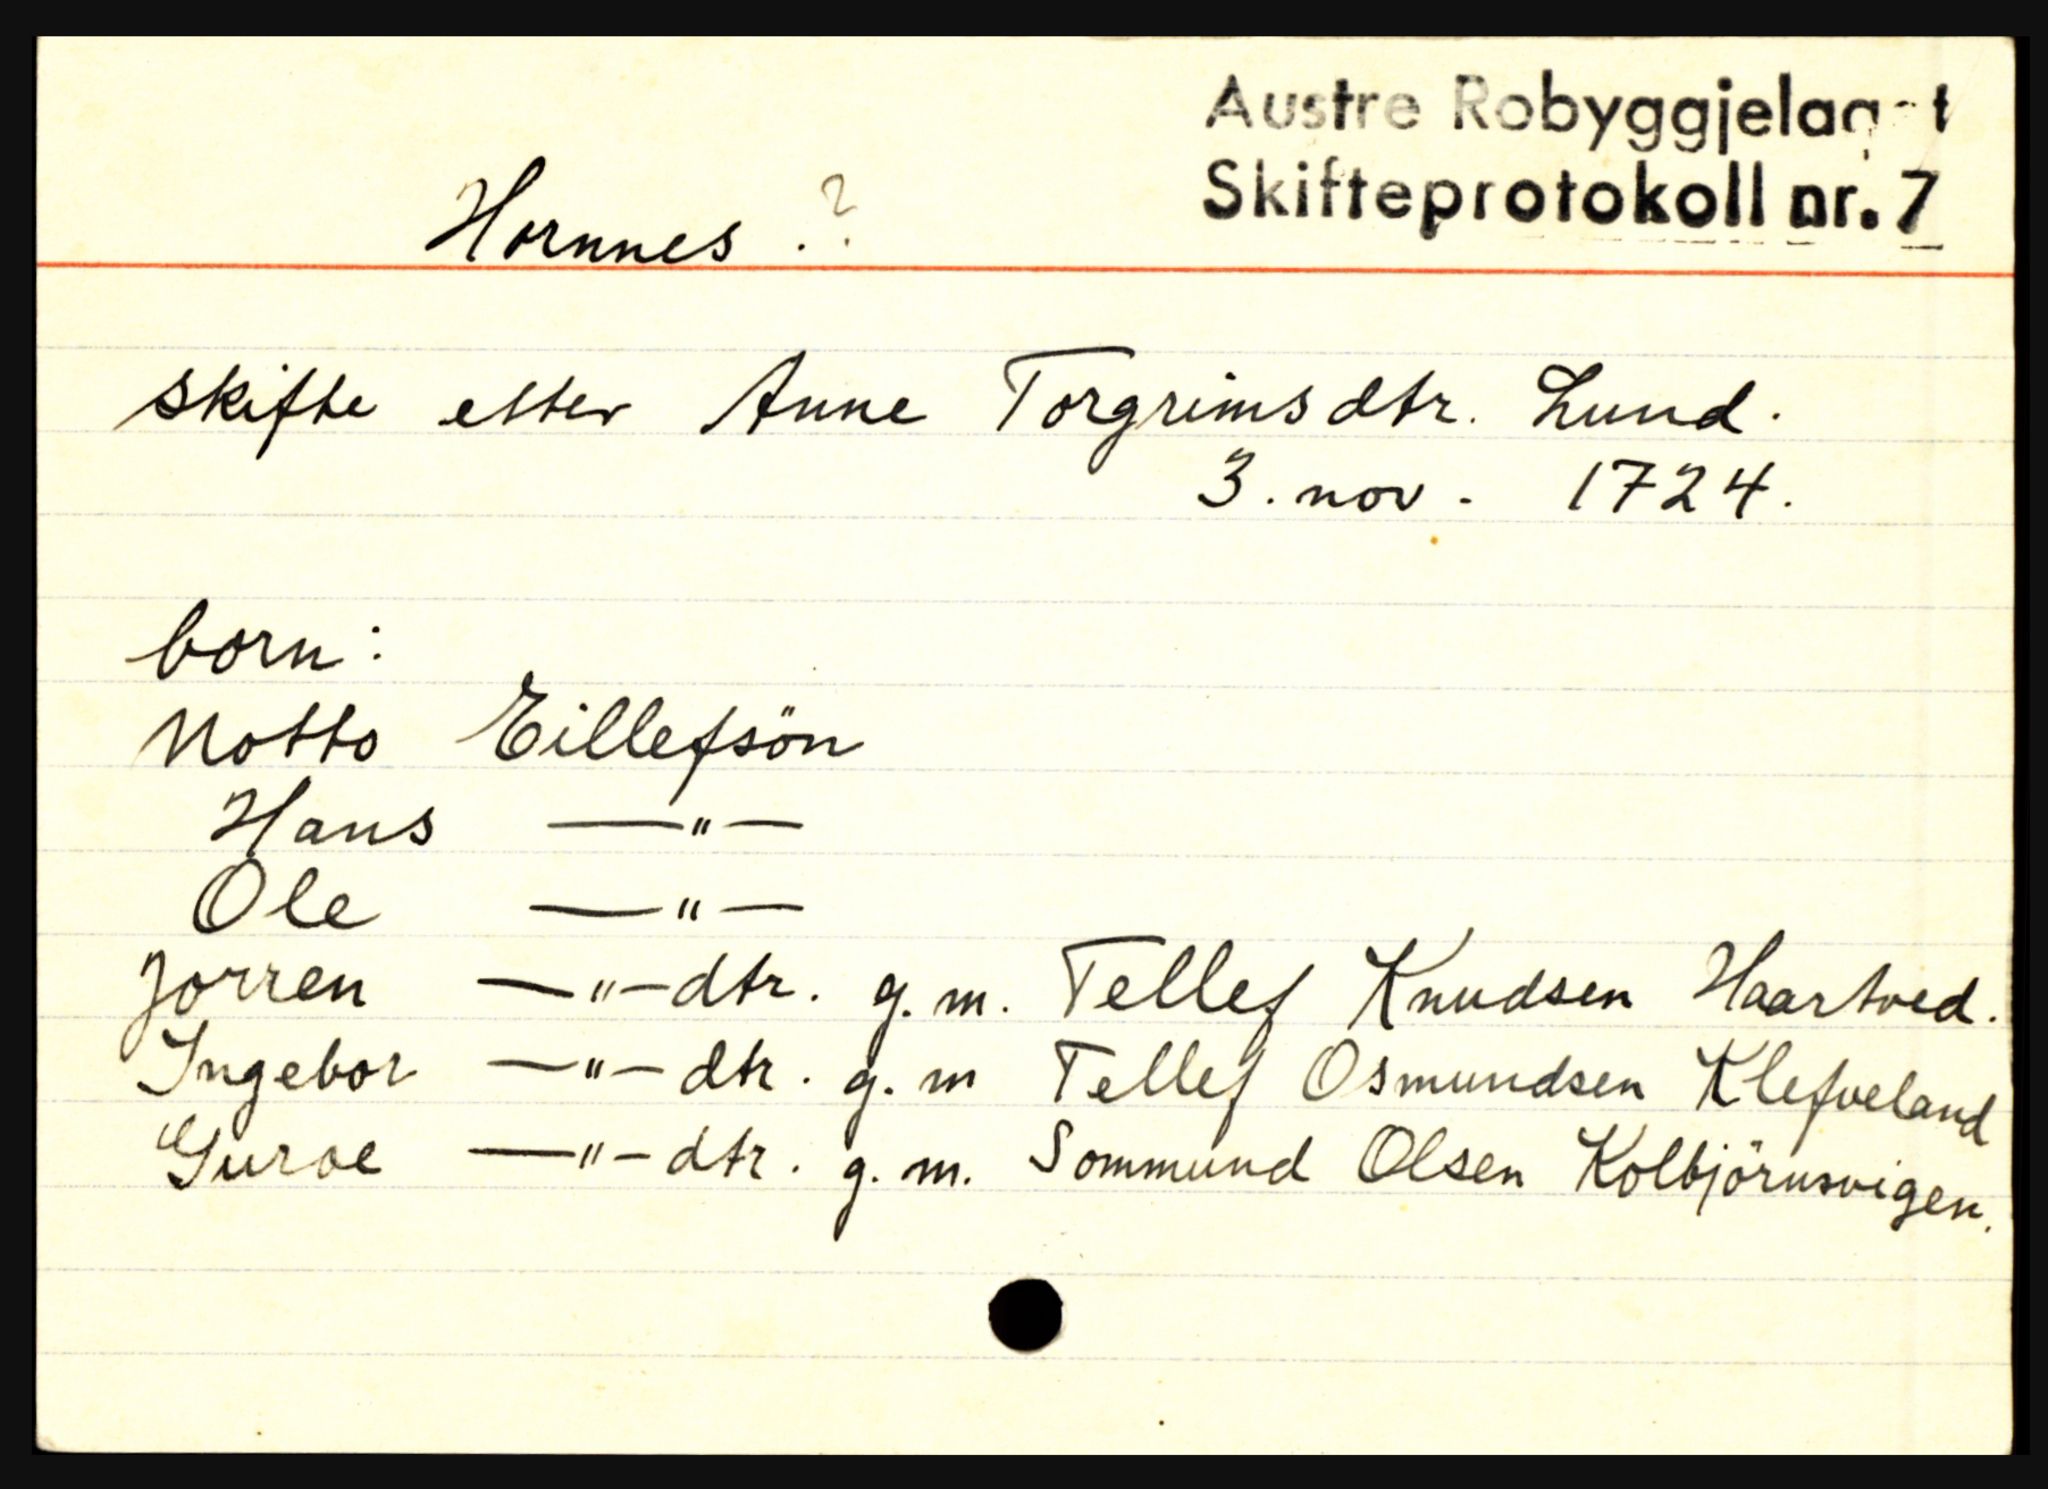 Austre Robyggjelaget
Skifteprotokoll nr. 7
Hornnes . ?
skifte etter Anne Torgrimsdtr. Lund.
3. nov. 1724.
born:
Notto Eillefsön
Hans —"—
Ole —"—
Jorren —"—dtr. g. m. Tellef Knudsen Haartved.
Ingebor —"—dtr. g. m Tellef Osmundsen Klefveland
Guroe —"—dtr. g. m. Sommund Olsen Kolbjörnsvigen.